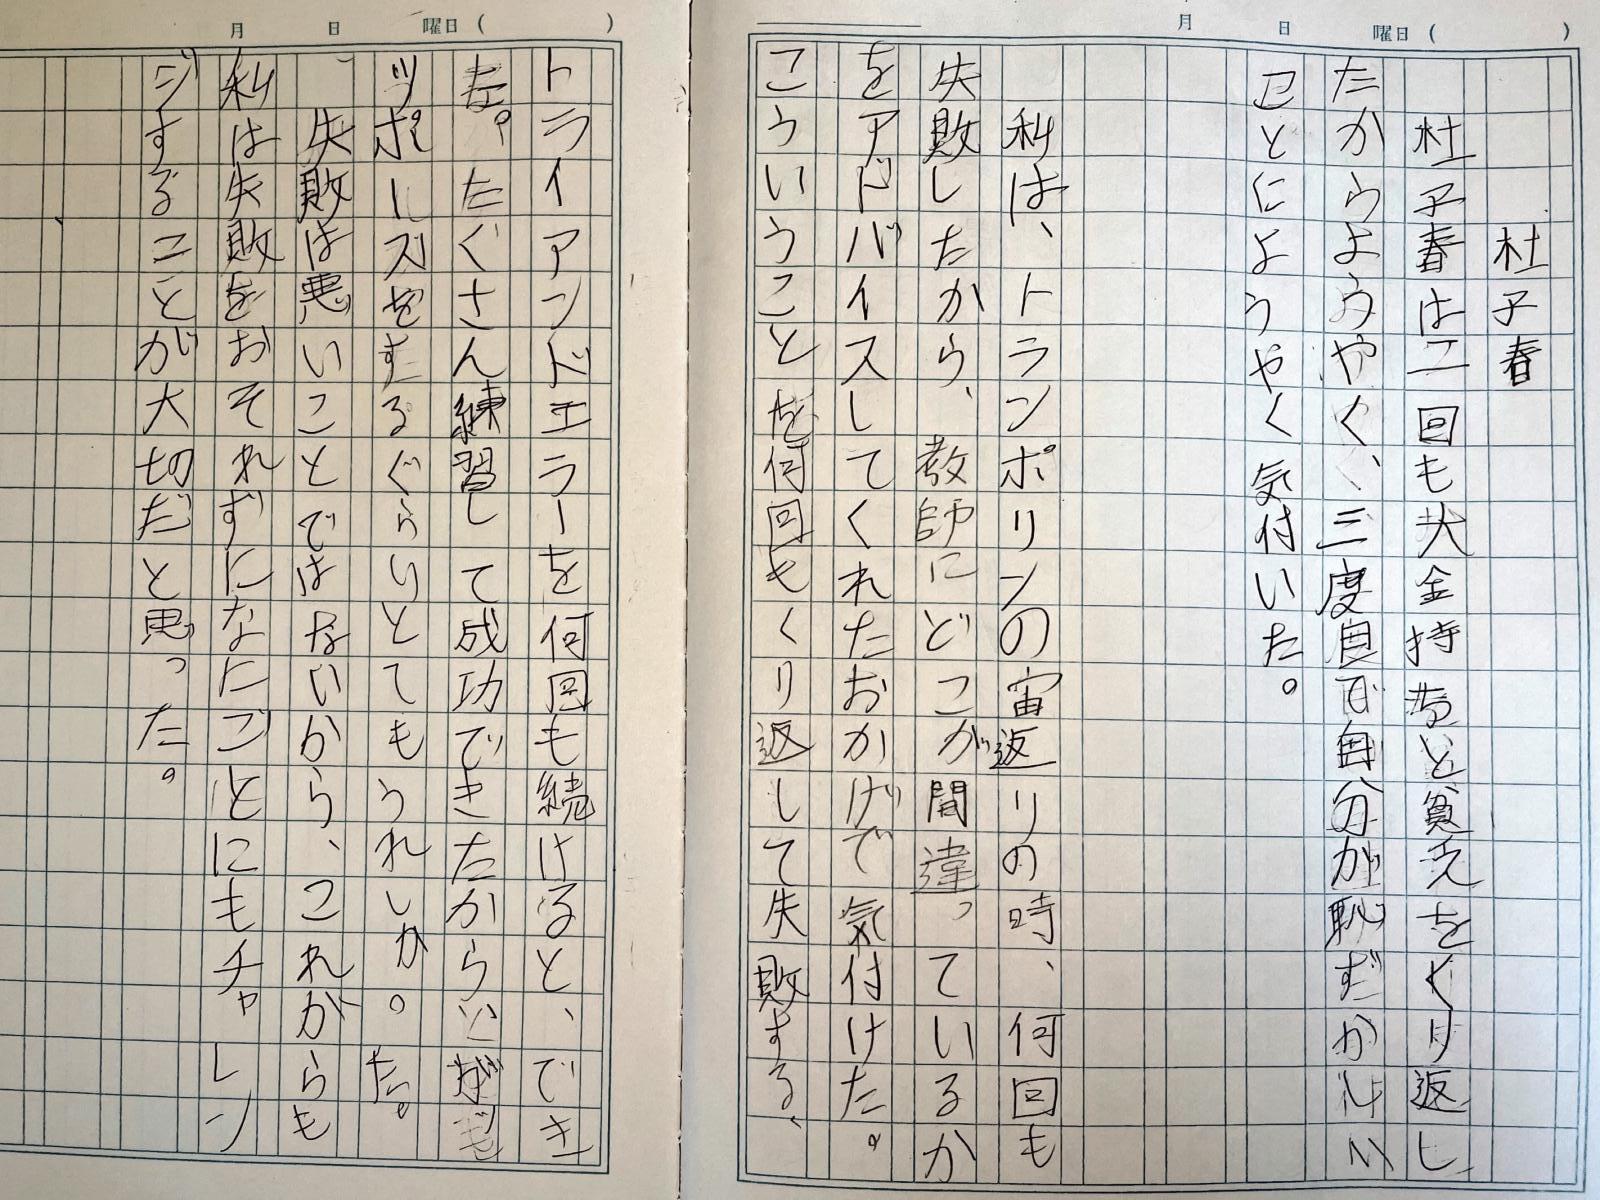 月 日 曜日( )
杜子春
杜子春は二回も大金持ちと貧乏をくり返し
たからようやく、三度目で自分が恥ずかしい
ことにようやく気付いた。
私は、トランポリンの宙返りの時、何回も
失敗したから、教師にどこが間違っているか
をアドバイスしてくれたおかげで気付けた。
こういうことを何回もくり返して失敗する、
月 日 曜日( )
トライアンドエラーを何回も続けると、でき
た。たくさん練習して成功できたから
ッポーズをするぐらいとてもうれしか。た。
失敗は悪いことではないから、これからも
私は失敗をおそれずになにごとにもチャレン
ジすることが大切だと思った。